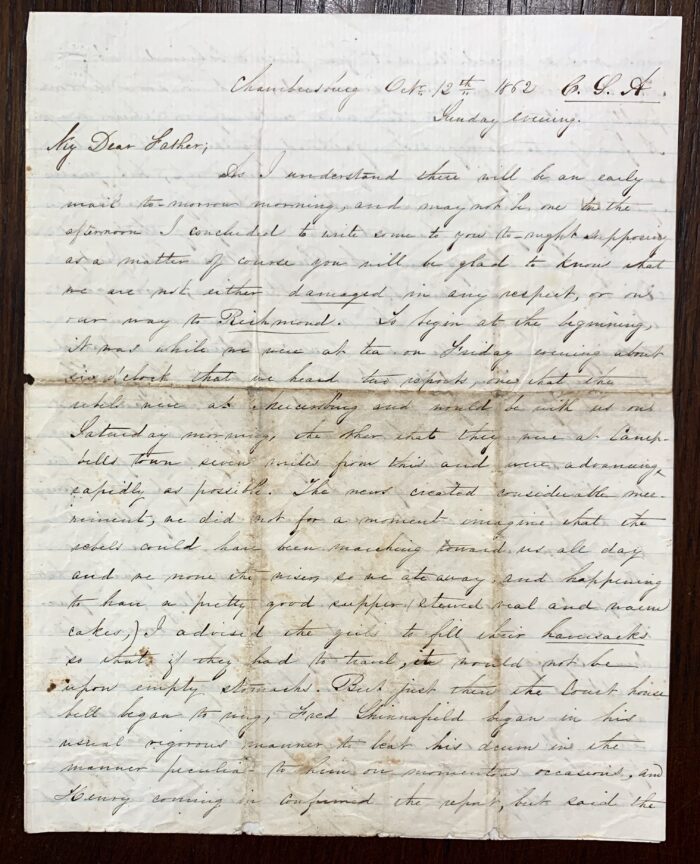 Chambersburg Oct. 12th 1862 C. S. A.
Sunday evening.
My Dear Father;
As I understand there will be an early
mail to morrow morning, and may not be one in the
afternoon I concluded to write some to you to-night supposing
as a matter of course you will be glad to know that
we are not either damaged in any respect, or on
our way to Richmond. To begin at the beginning,
it was while we were at tea on Friday evening about
six o'clock that we heard two reports, one that the
rebels were at Mercersburg and would be with us on
Saturday morning, the other that they were at Camp-
bells town seven miles from this and were advancing
rapidly as possible. The news created considerable mer-
riment, we did not for a moment imagine that the
rebels could have been marching toward us all day
and we none the wiser, so we ate away, and happening
to have a pretty good supper, (stewed veal and warm
cakes,) I advised the girls to fill their haversacks
so that if they had to travel, it would not be
upon empty stomachs. But just then the Court house
bell began to ring, Fred Shinnafield began in his
usual vigorous manner to beat his drum in the
manner peculiar to him on momentous occasions, and
Henry coming in confirmed the report, but said the